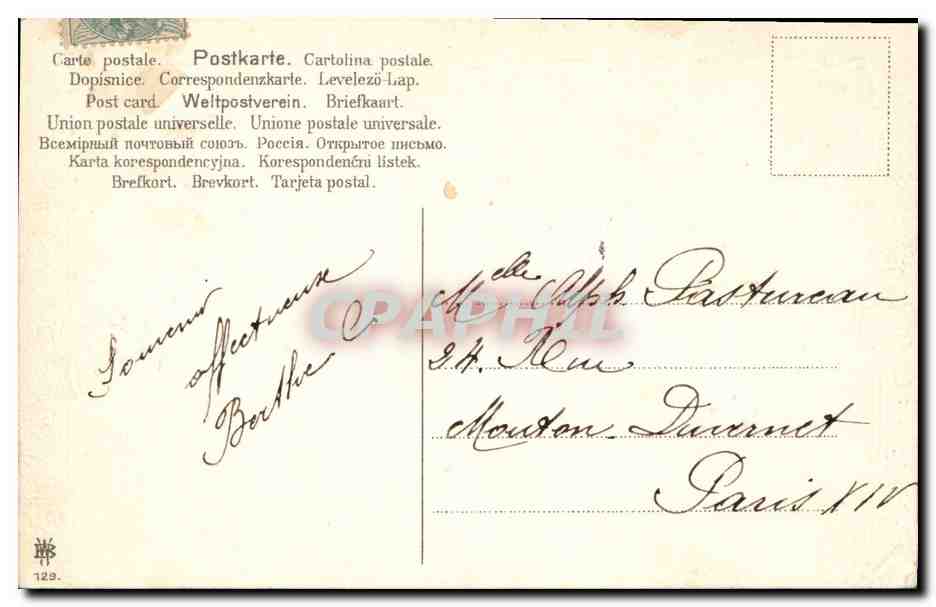 Carte postale. Postkarte. Cartolina postale.
Dopisnice. Correspondenzkarte. Levelező-Lap.
Post card. Weltpostverein. Briefkaart.
Union postale universelle. Unione postale universale.
Всемірный почтовый союзъ. Россія. Открытое письмо.
Karta korespondencyjna. Korespondenčni listek.
Brefkort. Brevkort. Tarjeta postal.
Souvenir
affectueux
Berthe C
Melle Alph Pastureau
24. Rue
Mouton-Duvernet
Paris XIV
CPAPHIL
129.